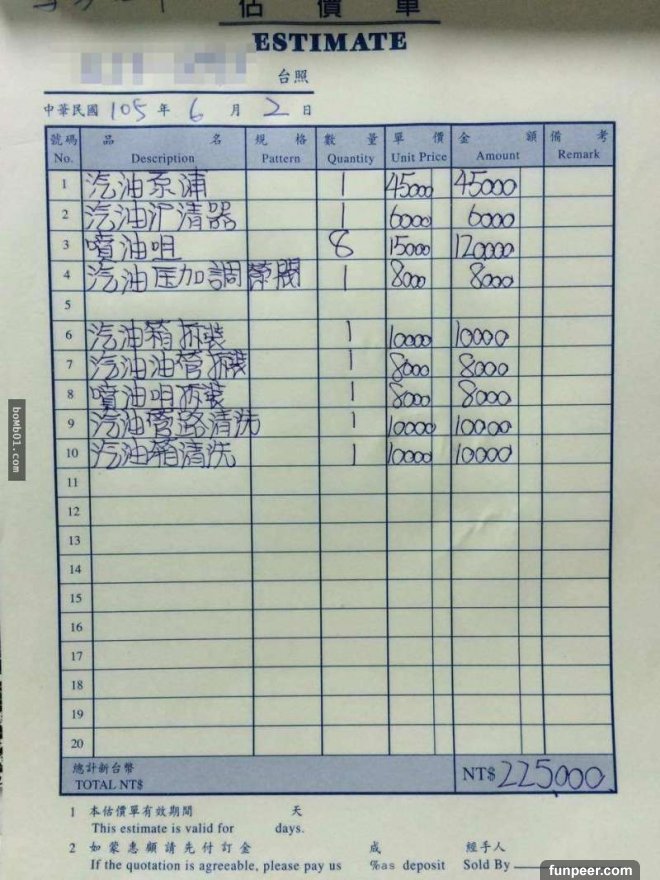 估價單
ESTIMATE
台照
中華民國 105 年 6 月 2 日
號碼 品名 規格 數量 單價 金額 備考
No. Description Pattern Quantity Unit Price Amount Remark
1 汽油泵浦 1 45000 45000
2 汽油沪清器 1 6000 6000
3 噴油咀 8 15000 120000
4 汽油压加調築閥 1 8000 8000
5
6 汽油箱拆裝 1 10000 10000
7 汽油油管拆裝 1 8000 8000
8 噴油咀拆裝 1 8000 8000
9 汽油管路清洗 1 10000 10000
10 汽油箱清洗 1 10000 10000
11
12
13
14
15
16
17
18
19
20
總計新台幣
TOTAL NT$ NT$ 225000
1 本估價單有效期間 天
This estimate is valid for days.
2 如蒙惠顧請先付訂金 成 經手人
If the quotation is agreeable, please pay us %as deposit Sold By
boMb01.com
funpeer.com